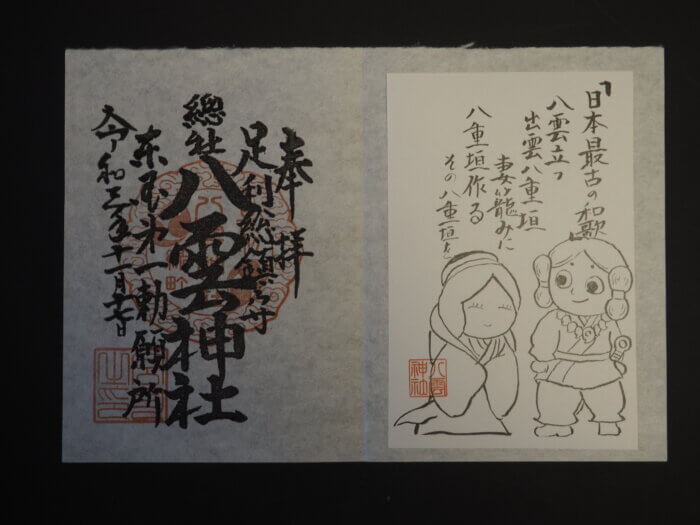 「日本最古の和歌」
八雲立つ
出雲八重垣
妻籠みに
八重垣作る
その八重垣を
八雲神社
奉拝
足利総鎮守
總社
八雲神社
東国第一勅願所
令和三年十一月